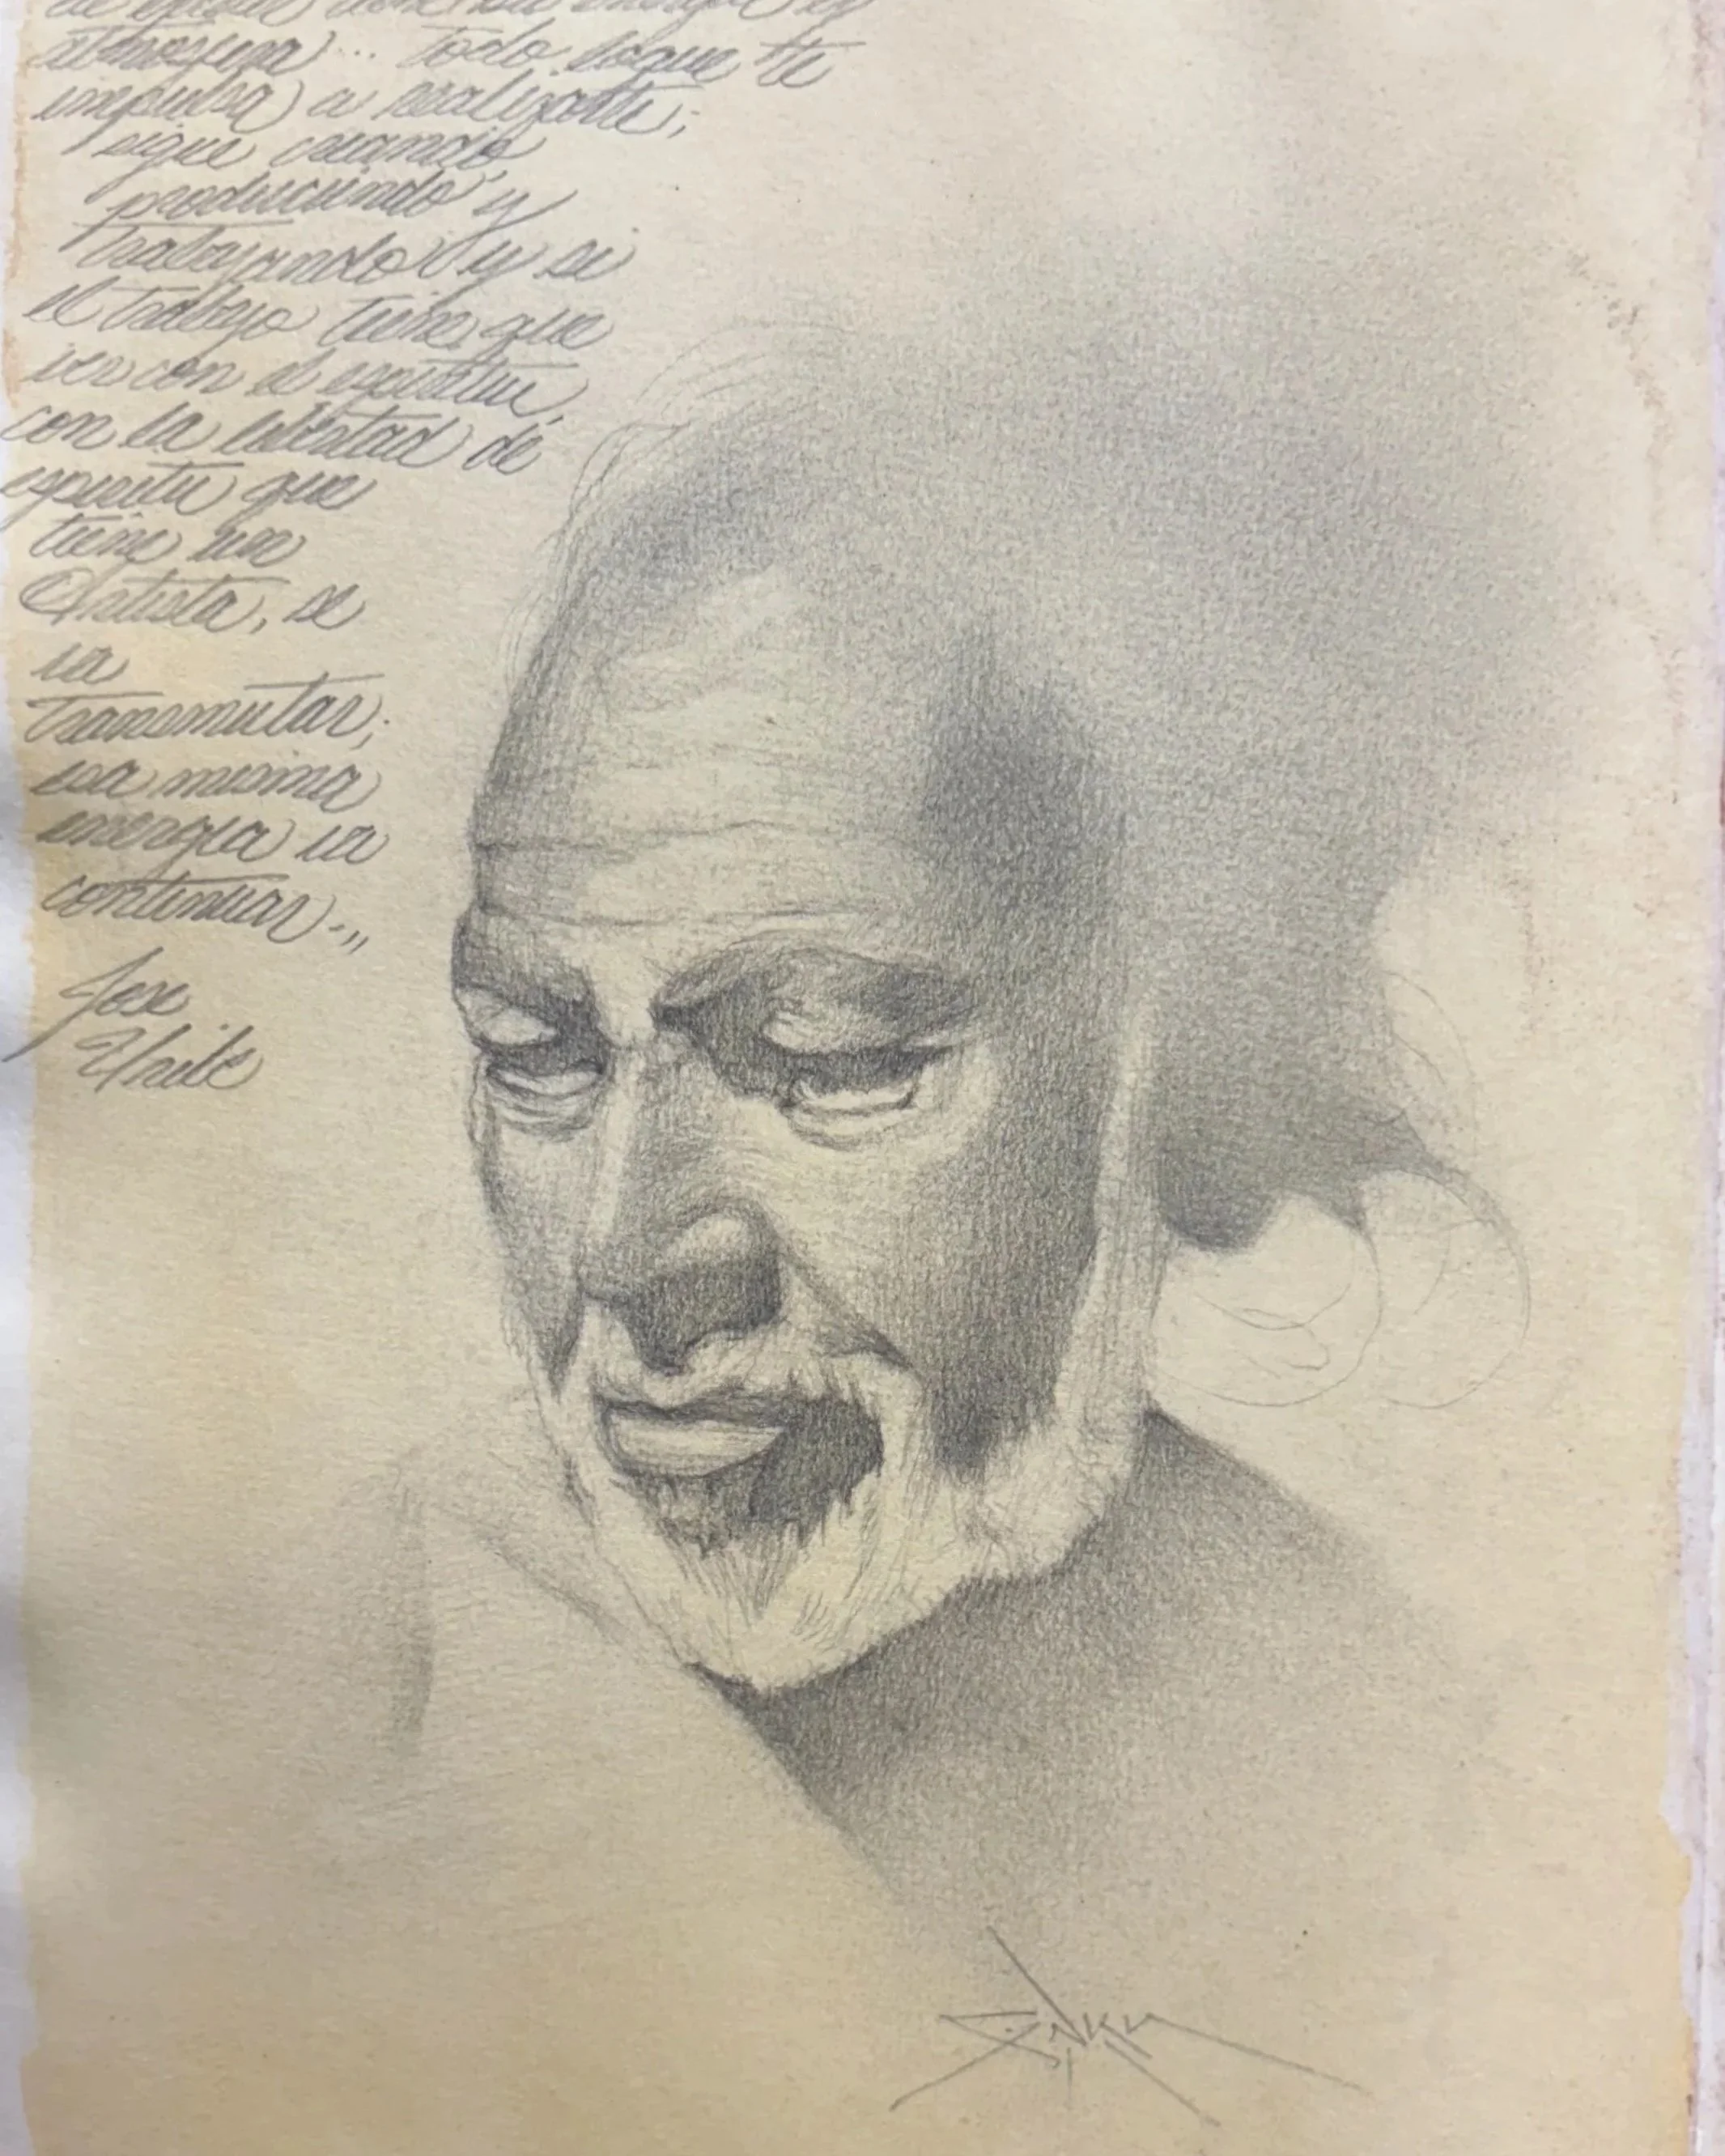 energía es
atmosfera)... todo loque te
impulsa) a realizarte;
sigue creando,
produciendo y
trabajando y si
el trabajo tiene que
ver con el espíritu,
con la libertad de
espiritu que
tiene un
Artista, se
va
transmutar;
esa misma
energia va
continuar..,,
Jose